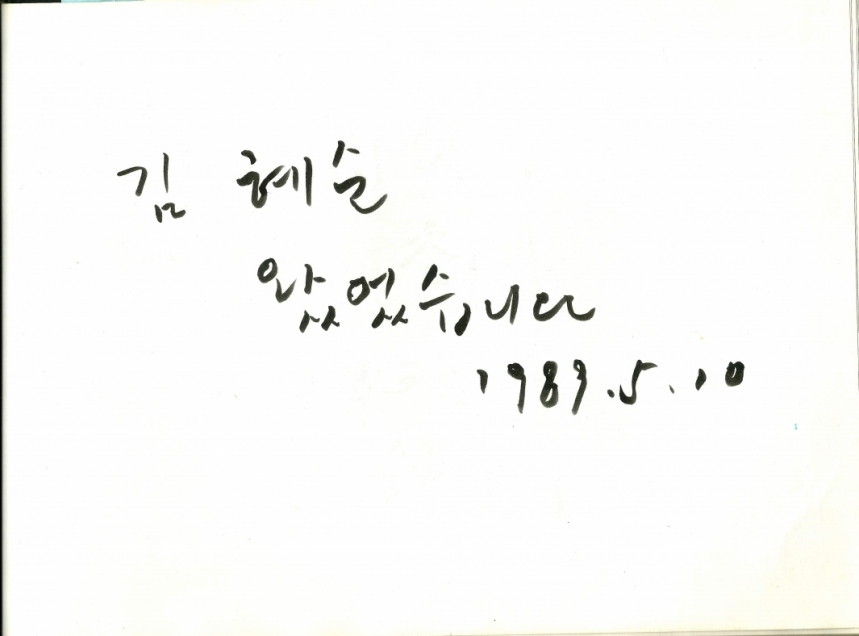 김 혜순
왔었습니다
1989.5.10